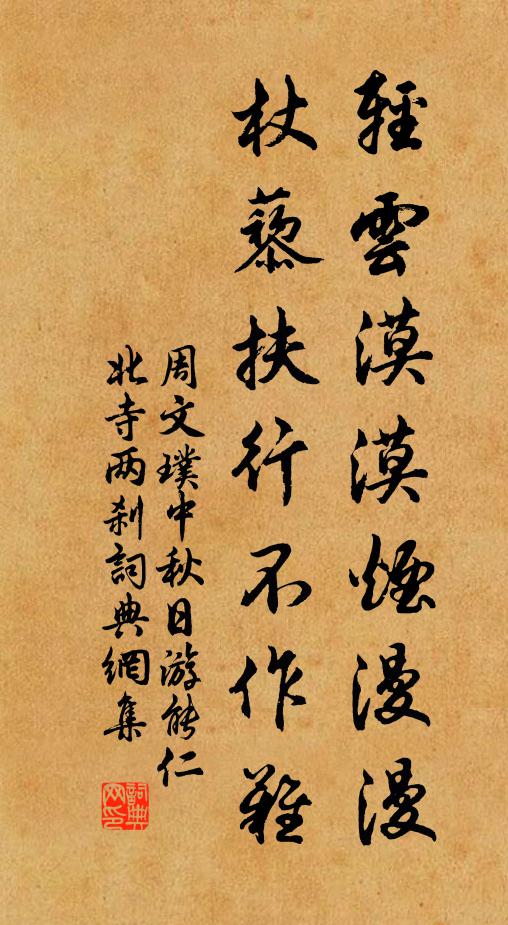 輕雲漠漠煙漫漫
杖藜扶行不作難
周文璞中秋日游能仁
北寺两刹詞典網集
詞典网印